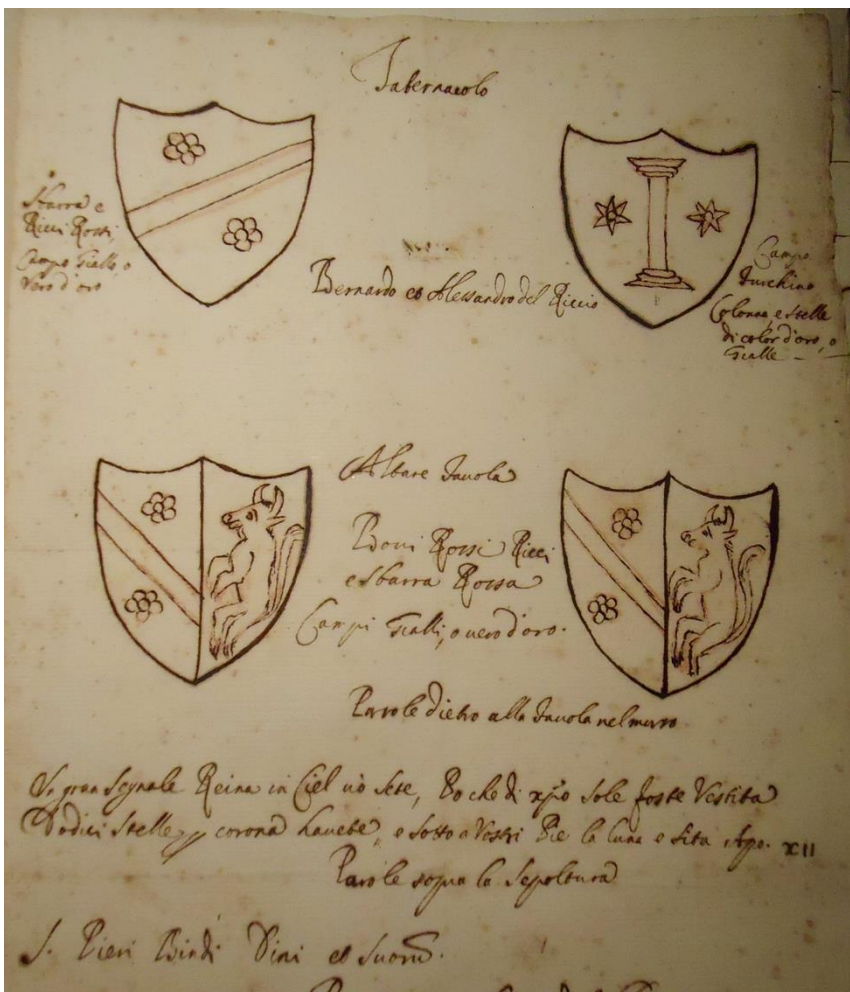 Tabernacolo
Sbarra e
Ricci Rossi,
Campo Giallo, o
Vero d'oro
Bernardo et Alessandro del Riccio
Campo
Turchino
Colonna, e stelle
di color d'oro, o
Gialle
Altare Tavola
Rossi Ricci
e Sbarra Rossa
Campi Gialli, o vero d'oro.
Parole dietro alla Tavola nel muro
Un gran Segnale Reina in Ciel sete, che di xpo Sole foste Vestita
Dodici Stelle corona havete, e sotto a Vostri Pie la luna e sita, Apo. XII
Parole sopra la Sepoltura
S. Pieri Bindi Dini et Suorum.